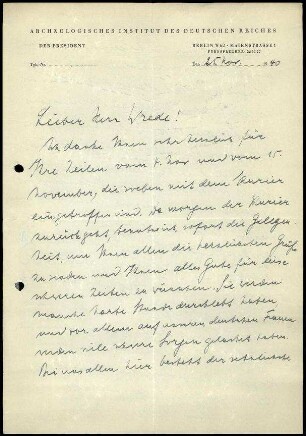 ARCHÄOLOGISCHES INSTITUT DES DEUTSCHEN REICHES
DER PRÄSIDENT
BERLIN W62 · MAIENSTRASSE 1
FERNSPRECHER:
Tgb.-Nr.
Den 25. Nov. 1940
Lieber Herr Wrede!
Ich danke Ihnen sehr herzlich für
Ihre Zeilen vom 7. Nov. und vom 15.
November, die soeben mit dem Kurier
eingetroffen sind. Da morgen der Kurier
zurückgeht, benutze ich sofort die Gelegen
heit, um Ihnen allen die herzlichsten Grüße
zu senden und Ihnen alles Gute für diese
schweren Zeiten zu wünschen. Sie werden
manche harte Stunde durchlebt haben
und vor allem auf unseren deutschen Frauen
werden viele schwere Sorgen gelastet haben.
Bei uns allen hier besteht der